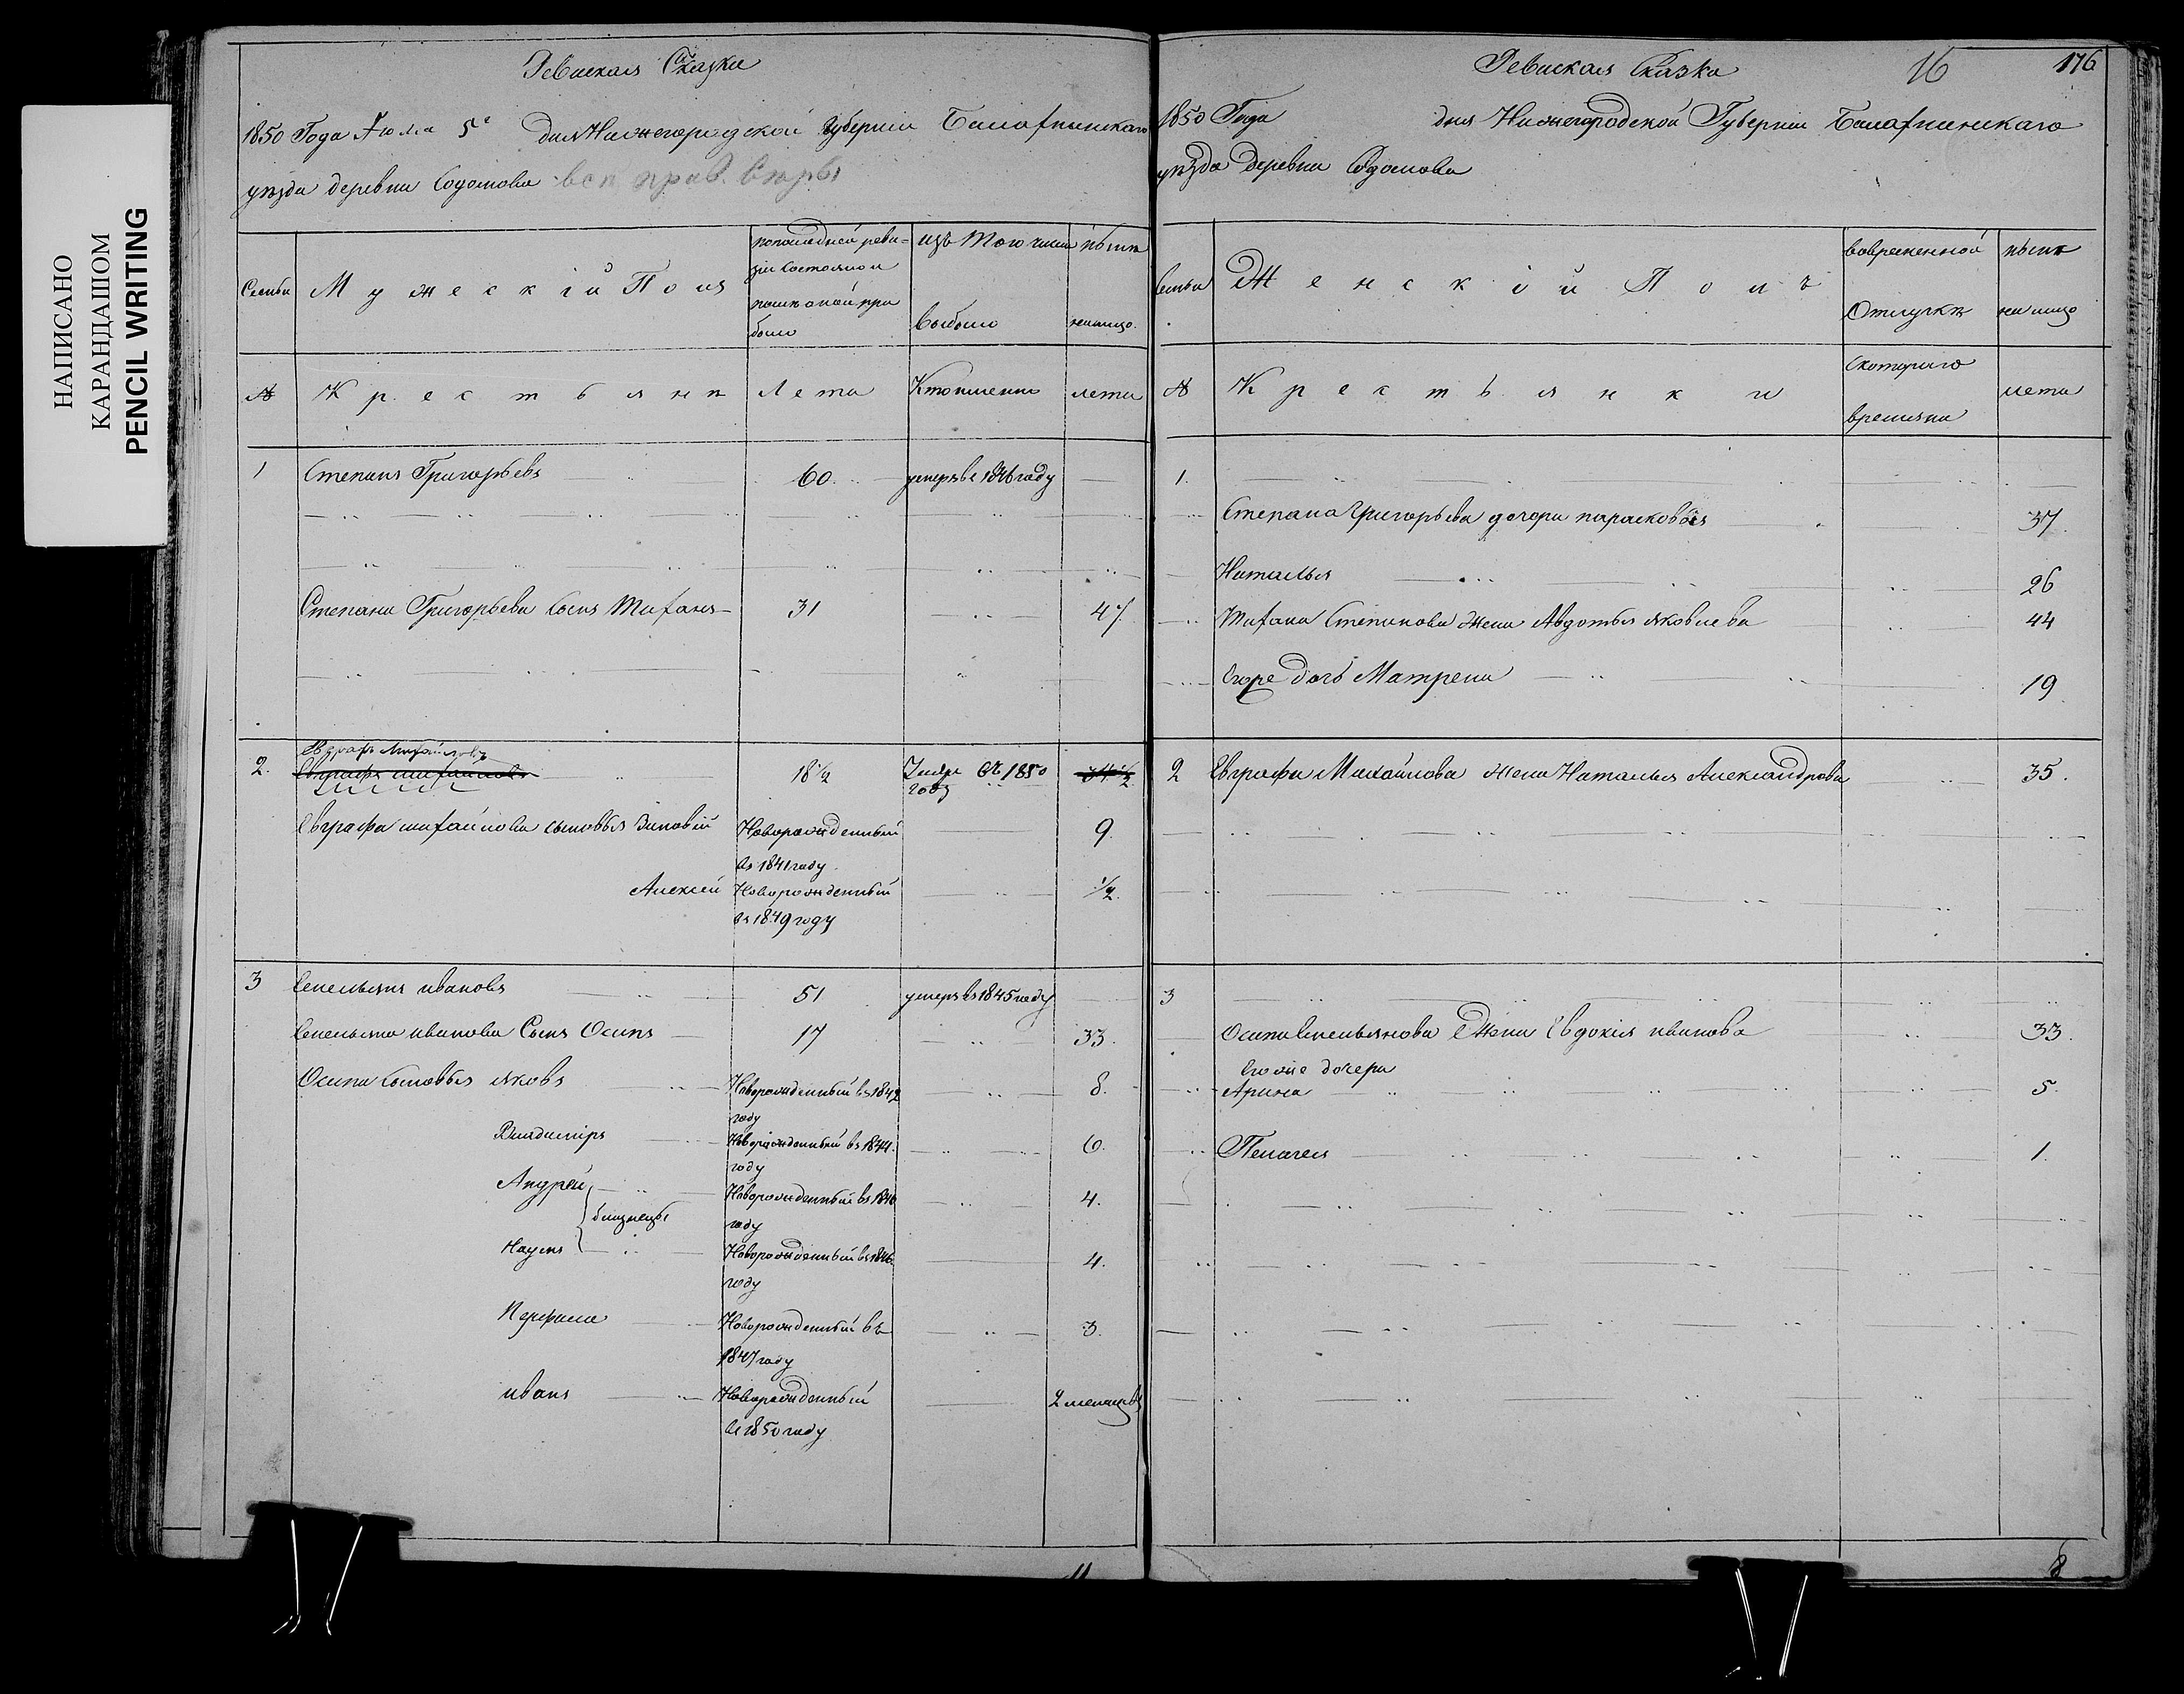 НАПИСАНО
КАРАНДАШОМ
PENCIL WRITING
Ревиская Сказка
1850 Года Июля 5 дня Нижегородской Губернiи Балахнинскаго
уезда деревни Содомова
Семьи
Мужескiй Полъ
попоследней реви-
зiи состояло и
после оной при
было
изъ того числа
выбыло
ныне
налицо.
№
Крестьяне
Лета
Кто именно
лета
1 Степанъ Григорьевъ 60. умеръ въ 1846 году
Степана Григорьева сынъ Тиханъ 31 47.
Евграфъ Михайловъ
2. Евграфъ михайловъ 18 1/2 1850
году
34 1/2
Евграфа михайлова сыновья Зиновiй Новорожденный 9.
въ 1841 году
Алексей Новорожденный 1/2.
въ 1849 году
3 Емельянъ ивановъ 51 умеръ въ 1845 году
Емельяна иванова Сынъ Осипъ 17 33.
Осипа сыновья яковъ Новорожденный въ 1842 8.
году
Владимiръ Новорожденный въ 1844. 6.
году
Андрей Новорожденный въ 1846 4.
близнецы году
Наумъ Новорожденный въ 1846. 4.
году
Новорожденный въ 3.
1847 году
иванъ Новорожденный 2 месецовъ
въ 1850 году
11
Ревиская Сказка 16 176
1850 Года дня Нижегородской Губернiи Балахнинскаго
уезда деревни Содомова
семьи
Женскiй Полъ
вовременной
Отлучке
ныне
на лицо
№
Крестьянки
Скотораго
времяни
лета
1.
Степана Григорьева дочери парасковья 37
Наталья 26
Тихана Степанова жена Авдотья яковлева 44
Егоже дочь Матрена 19
2 Евграфа Михайлова жена Наталья Александрова 35.
3
Осипа Емельянова Жена Евдокiя иванова 33.
Егоже дочери
Арина 5.
Пелагея 1.
8